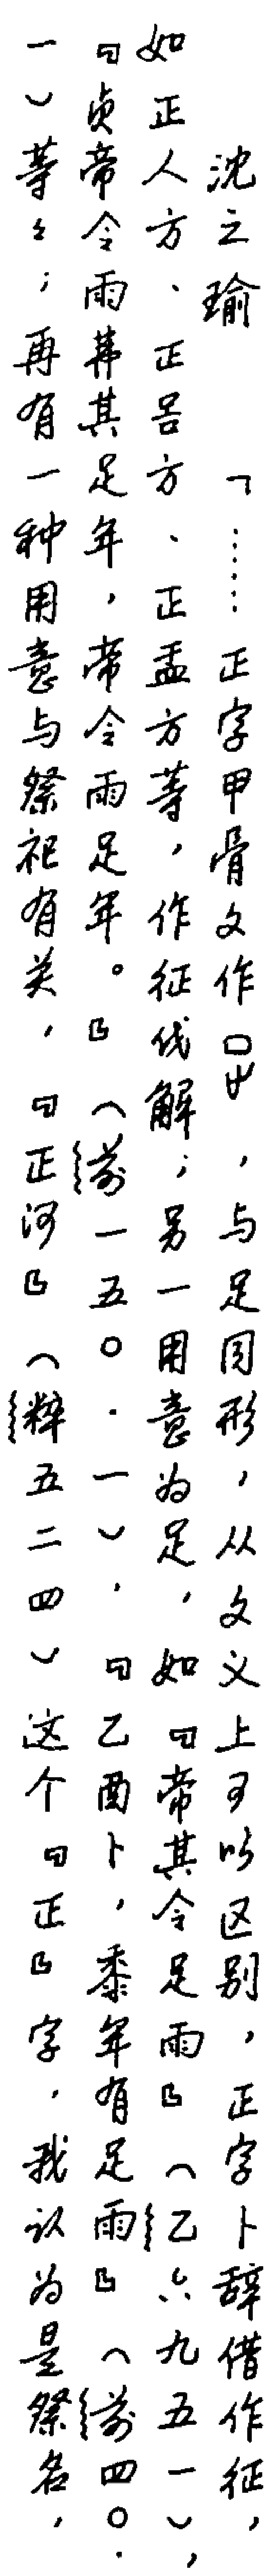 沈之瑜　「……正字甲骨文作𤴓，与足同形，从文义上可以区别，正字卜辞借作征，
如正人方、正吕方、正盂方等，作征伐解；另一用意为足，如『帝其令足雨』（乙六九五一），
『贞帝令雨弗其足年，帝令雨足年。』（前一五〇·一），『乙酉卜，黍年有足雨』（前四〇·
一）等々；再有一种用意与祭祀有关，『正河』（粹五二四）这个『正』字，我认为是祭名，